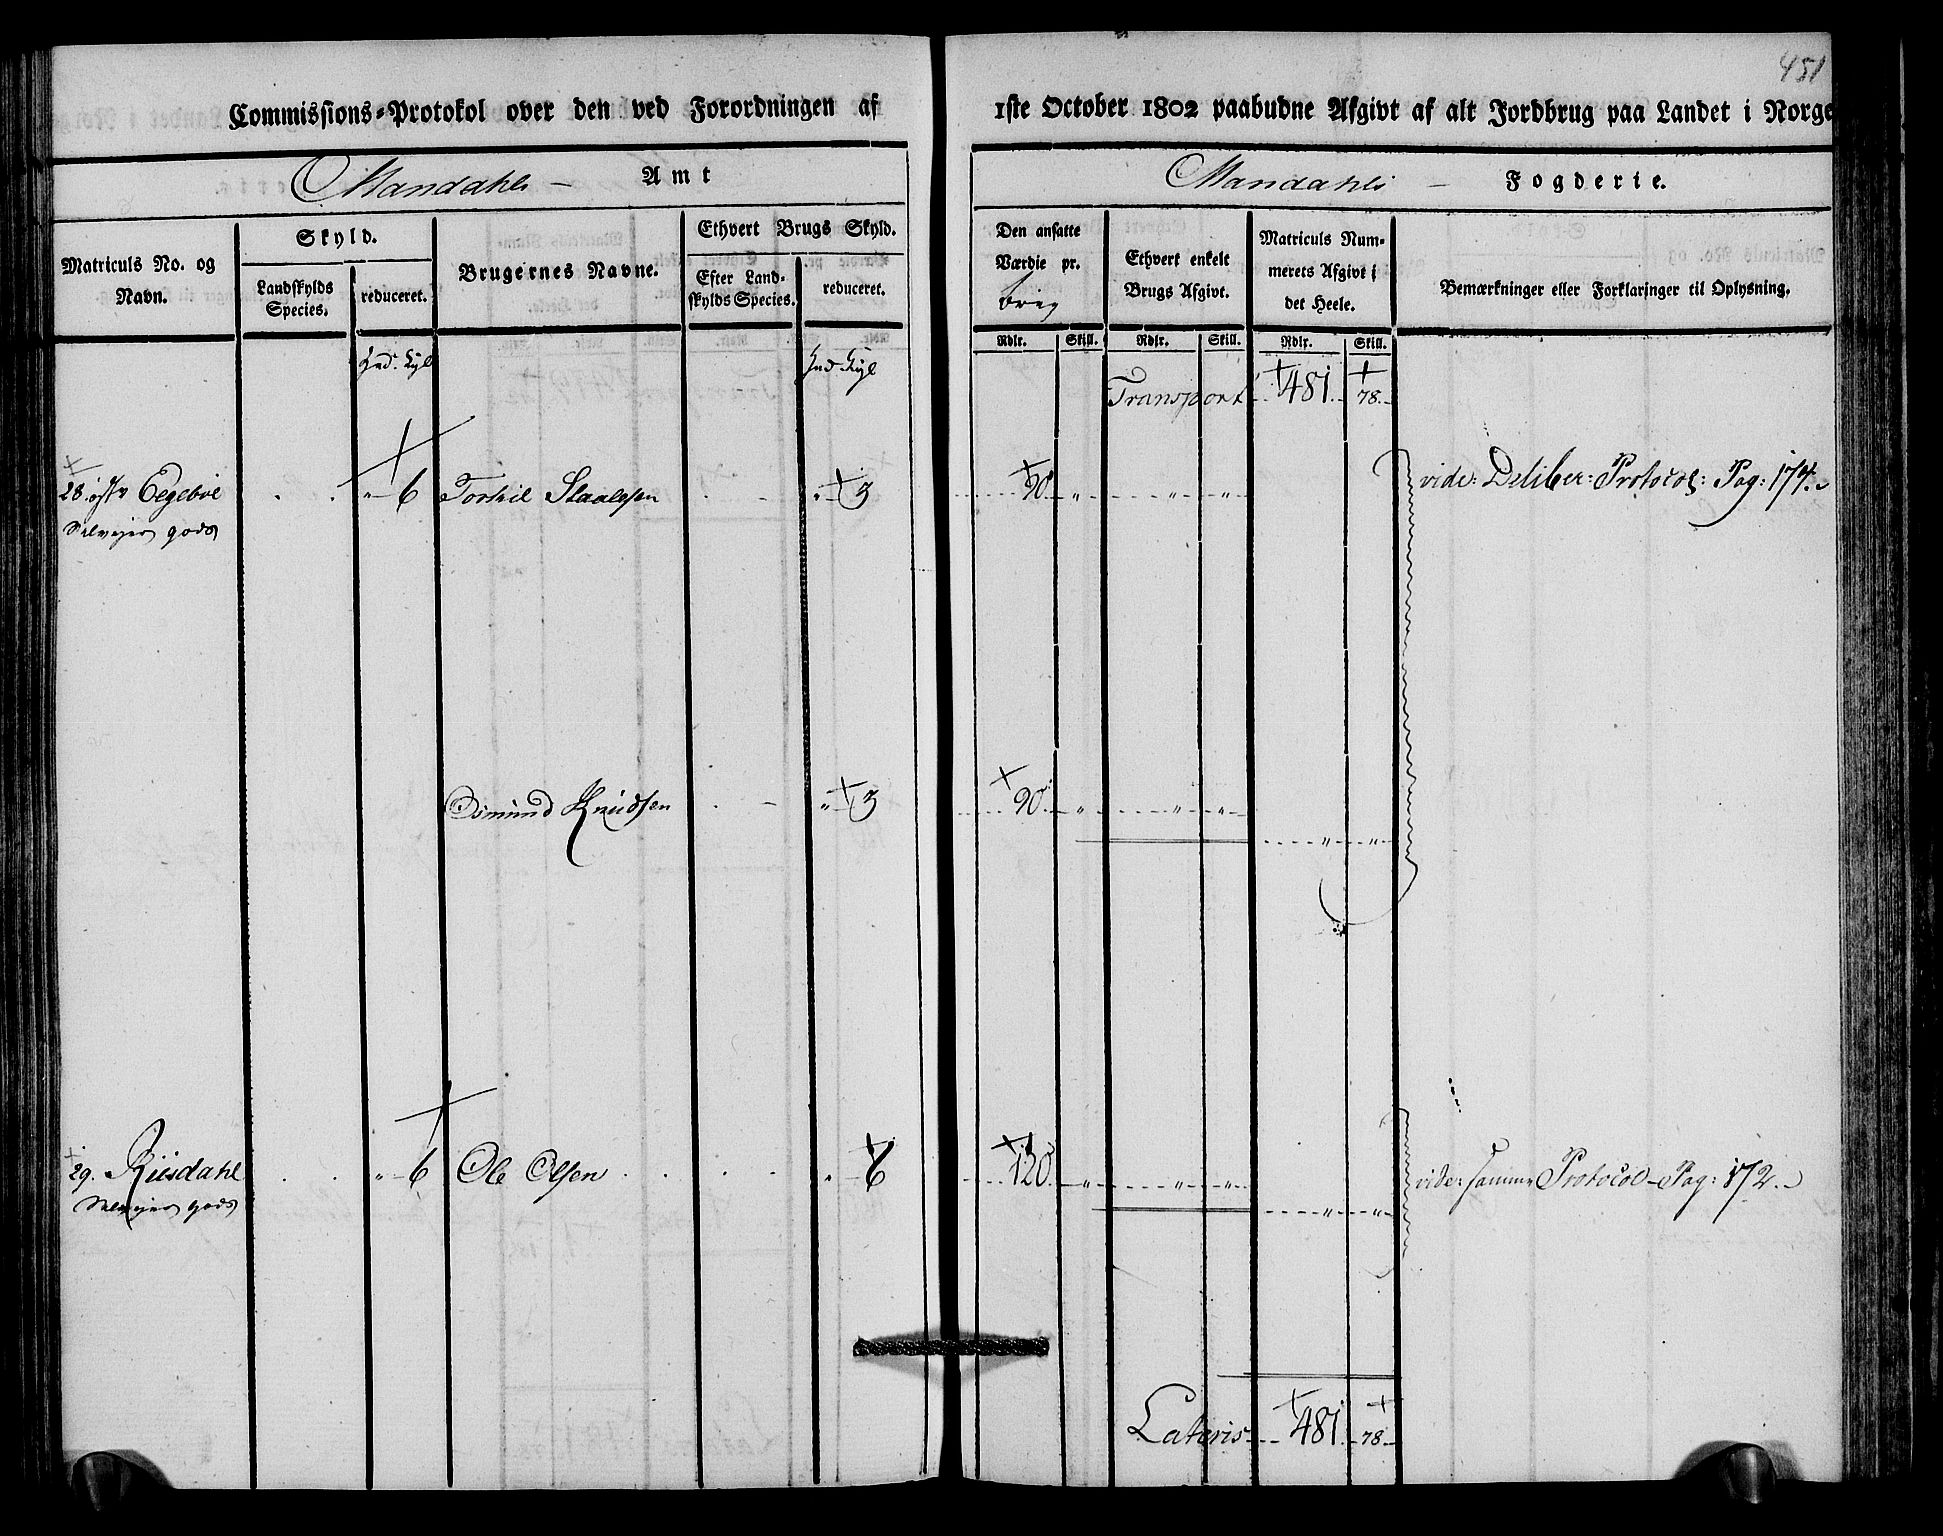 451
Commissions-Protokol over den ved Forordningen af 1ste October 1802 paabudne Afgivt af alt Jordbrug paa Landet i Norge
Mandahls Amt
Mandahls Fogderie.
Matriculs No. og Navn.
Skyld.
Landskylds Species.
reduceret.
Brugernes Navne.
Ethvert Brugs Skyld.
Efter Landskylds Species.
reduceret.
Den ansatte Værdie pr.
Ethvert enkelt Brugs Afgivt.
Matriculs Nummerets Afgivt i det Heele.
Bemærkninger eller Forklaringer til Oplysning.
Rdlr. Skill. Rdlr. Skill. Rdlr. Skill.
Transport 481. 78.
28. Egeboe " 6 Torkil Staalesen " 3 90 " " " vide: Deliber: Protocol: Pag: 174.
Selveyer gods
Osmund Knudsen " 3 90 " " "
" "
29. Riisdahl " 6 Ole Olsen " 6 120 " " " vide: samme Protocol Pag: 172.
Selveyer gods " "
Lateris 481. 78